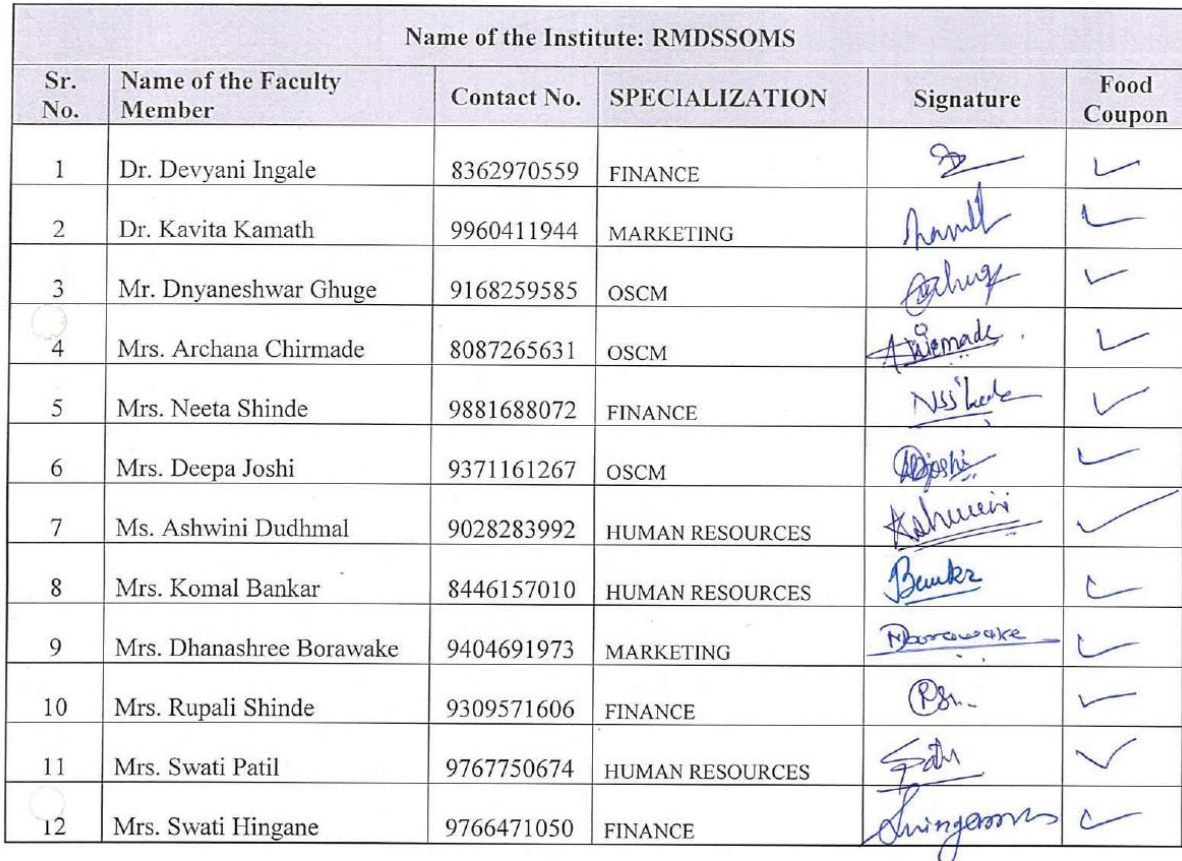 Name of the Institute: RMDSSOMS
Sr. No. Name of the Faculty Member Contact No. SPECIALIZATION Signature Food Coupon
1 Dr. Devyani Ingale 8362970559 FINANCE
2 Dr. Kavita Kamath 9960411944 MARKETING
3 Mr. Dnyaneshwar Ghuge 9168259585 OSCM
4 Mrs. Archana Chirmade 8087265631 OSCM
5 Mrs. Neeta Shinde 9881688072 FINANCE
6 Mrs. Deepa Joshi 9371161267 OSCM
7 Ms. Ashwini Dudhmal 9028283992 HUMAN RESOURCES Ashwini
8 Mrs. Komal Bankar 8446157010 HUMAN RESOURCES
9 Mrs. Dhanashree Borawake 9404691973 MARKETING
10 Mrs. Rupali Shinde 9309571606 FINANCE
11 Mrs. Swati Patil 9767750674 HUMAN RESOURCES
12 Mrs. Swati Hingane 9766471050 FINANCE